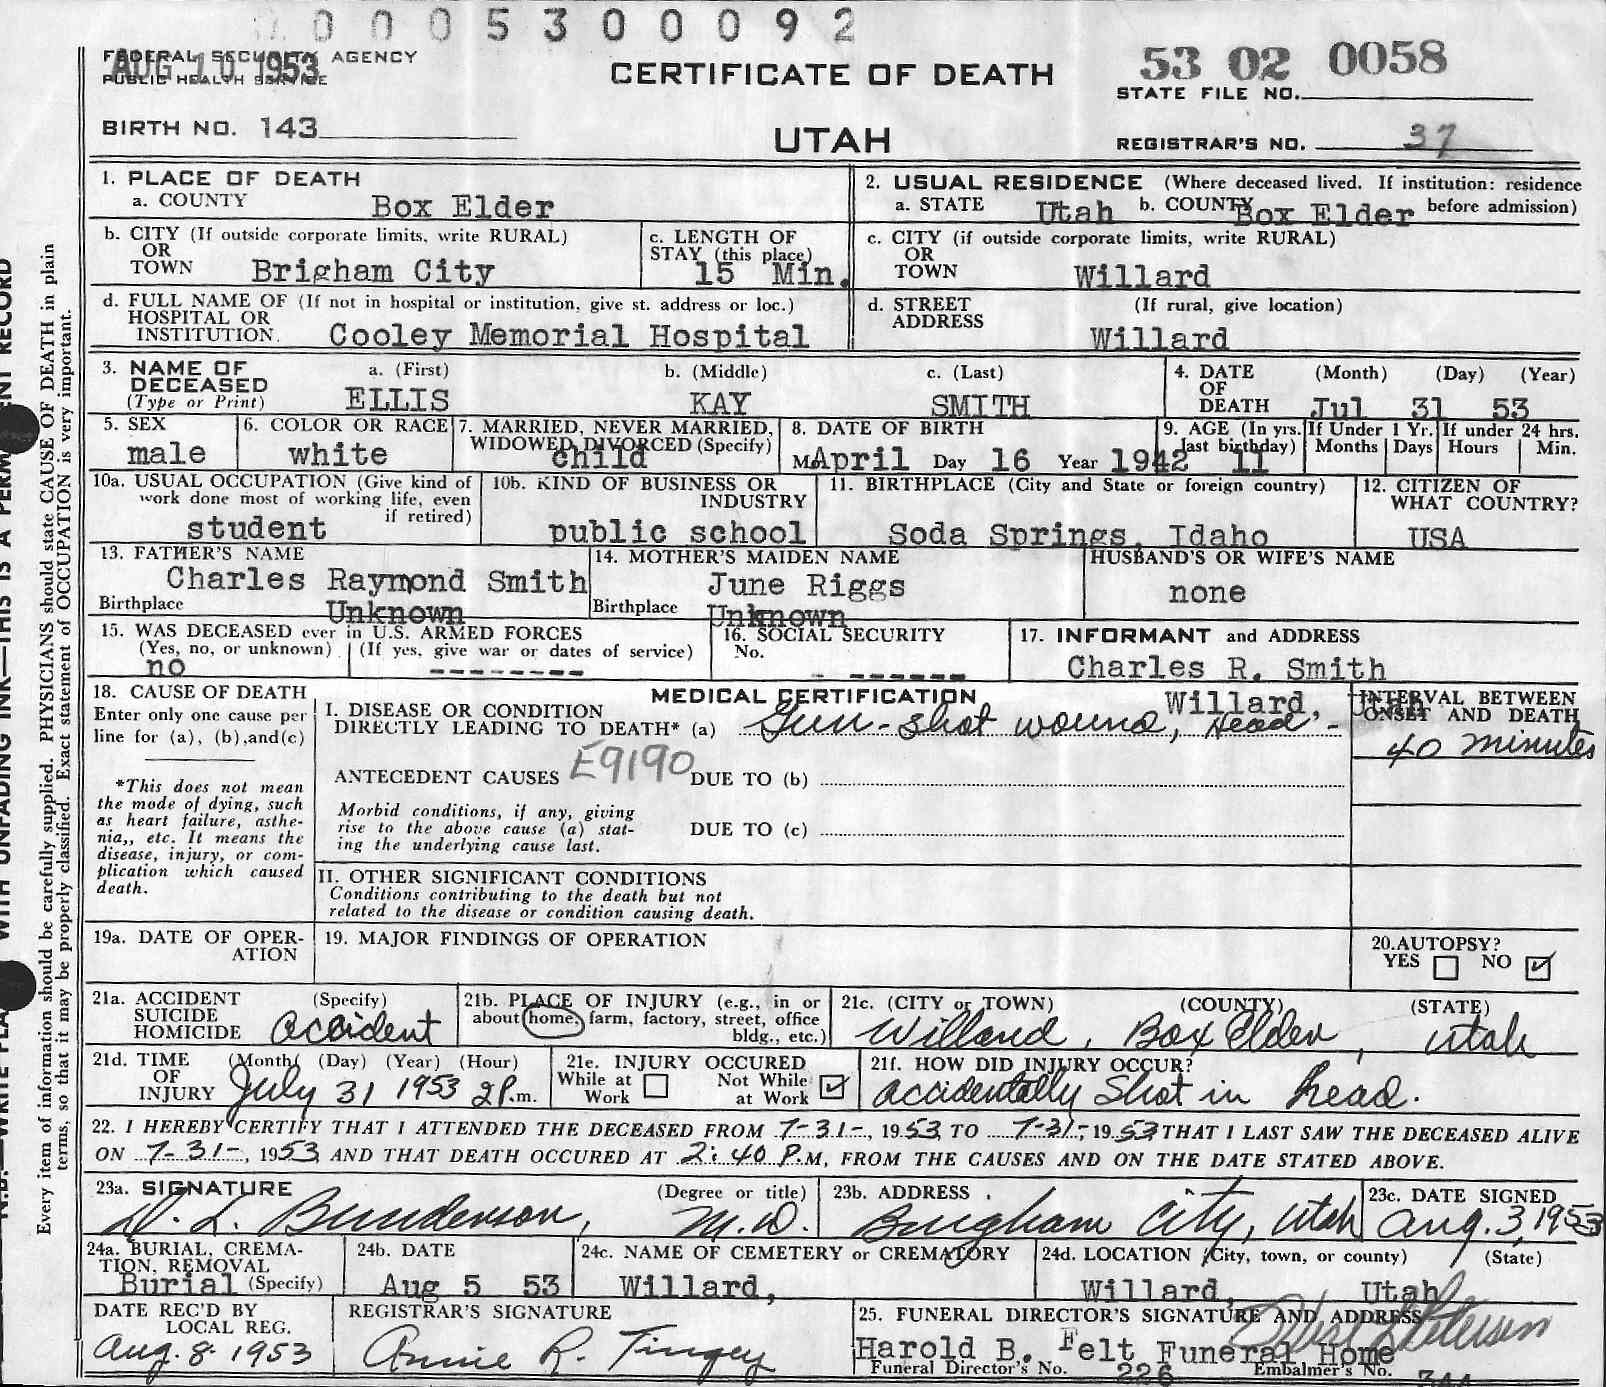 0 0 0 5 3 0 0 0 9 2
FEDERAL SECURITY AGENCY
PUBLIC HEALTH SERVICE
AUG 10 1953
CERTIFICATE OF DEATH
UTAH
53 02 0058
STATE FILE NO.
BIRTH NO. 143
REGISTRAR'S NO. 37
1. PLACE OF DEATH
a. COUNTY Box Elder
2. USUAL RESIDENCE (Where deceased lived. If institution: residence before admission)
a. STATE Utah b. COUNTY Box Elder
b. CITY (If outside corporate limits, write RURAL)
OR
TOWN Brigham City
c. LENGTH OF
STAY (this place)
15 Min.
c. CITY (if outside corporate limits, write RURAL)
OR
TOWN Willard
d. FULL NAME OF (If not in hospital or institution, give st. address or loc.)
HOSPITAL OR
INSTITUTION. Cooley Memorial Hospital
d. STREET (If rural, give location)
ADDRESS
Willard
3. NAME OF
DECEASED
(Type or Print)
a. (First)
ELLIS
b. (Middle)
KAY
c. (Last)
SMITH
4. DATE (Month) (Day) (Year)
OF
DEATH Jul 31 53
5. SEX
male
6. COLOR OR RACE
white
7. MARRIED, NEVER MARRIED,
WIDOWED, DIVORCED (Specify)
child
8. DATE OF BIRTH
April Day 16 Year 1942
9. AGE (In yrs.
last birthday)
11
If Under 1 Yr.
Months Days
If under 24 hrs.
Hours Min.
10a. USUAL OCCUPATION (Give kind of
work done most of working life, even
if retired)
student
10b. KIND OF BUSINESS OR
INDUSTRY
public school
11. BIRTHPLACE (City and State or foreign country)
Soda Springs, Idaho
12. CITIZEN OF
WHAT COUNTRY?
USA
13. FATHER'S NAME
Charles Raymond Smith
Birthplace Unknown
14. MOTHER'S MAIDEN NAME
June Riggs
Birthplace Unknown
HUSBAND'S OR WIFE'S NAME
none
15. WAS DECEASED ever in U.S. ARMED FORCES
(Yes, no, or unknown) (If yes, give war or dates of service)
no --------
16. SOCIAL SECURITY
No.
- ------
17. INFORMANT and ADDRESS
Charles R. Smith
Willard, Utah
18. CAUSE OF DEATH
Enter only one cause per
line for (a), (b),and(c)
*This does not mean
the mode of dying, such
as heart failure, asthe-
nia,, etc. It means the
disease, injury, or com-
plication which caused
death.
MEDICAL CERTIFICATION
I. DISEASE OR CONDITION
DIRECTLY LEADING TO DEATH* (a) Gun-shot wound, Head -
INTERVAL BETWEEN
ONSET AND DEATH
40 minutes
ANTECEDENT CAUSES E9190 DUE TO (b)
Morbid conditions, if any, giving
rise to the above cause (a) stat-
ing the underlying cause last.
DUE TO (c)
II. OTHER SIGNIFICANT CONDITIONS
Conditions contributing to the death but not
related to the disease or condition causing death.
19a. DATE OF OPER-
ATION
19. MAJOR FINDINGS OF OPERATION
20.AUTOPSY?
YES NO ✓
21a. ACCIDENT (Specify)
SUICIDE
HOMICIDE Accident
21b. PLACE OF INJURY (e.g., in or
about home, farm, factory, street, office
bldg., etc.)
21c. (CITY or TOWN) (COUNTY) (STATE)
Willard, Box Elder, Utah
21d. TIME (Month) (Day) (Year) (Hour)
OF
INJURY July 31 1953 2 P.m.
21e. INJURY OCCURED
While at Work
Not While at Work ✓
21f. HOW DID INJURY OCCUR?
accidentally shot in head.
22. I HEREBY CERTIFY THAT I ATTENDED THE DECEASED FROM 7-31-, 1953, TO 7-31-, 1953 THAT I LAST SAW THE DECEASED ALIVE
ON 7-31-, 1953, AND THAT DEATH OCCURED AT 2:40 P.M, FROM THE CAUSES AND ON THE DATE STATED ABOVE.
23a. SIGNATURE (Degree or title)
D. L. Bunderson, M.D.
23b. ADDRESS
Brigham City, Utah
23c. DATE SIGNED
Aug. 3, 1953
24a. BURIAL, CREMA-
TION, REMOVAL
Burial (Specify)
24b. DATE
Aug 5 53
24c. NAME OF CEMETERY or CREMATORY
Willard,
24d. LOCATION (City, town, or county) (State)
Willard, Utah
DATE REC'D BY
LOCAL REG.
Aug. 8. 1953
REGISTRAR'S SIGNATURE
Annie R. Tingey
25. FUNERAL DIRECTOR'S SIGNATURE AND ADDRESS
Harold B. Felt Funeral Home
Funeral Director's No. 226 Embalmer's No. 344
Every item of information should be carefully supplied. PHYSICIANS should state CAUSE OF DEATH in plain
terms, so that it may be properly classified. Exact statement of OCCUPATION is very important.
WITH UNFADING INK—THIS IS A RECORD